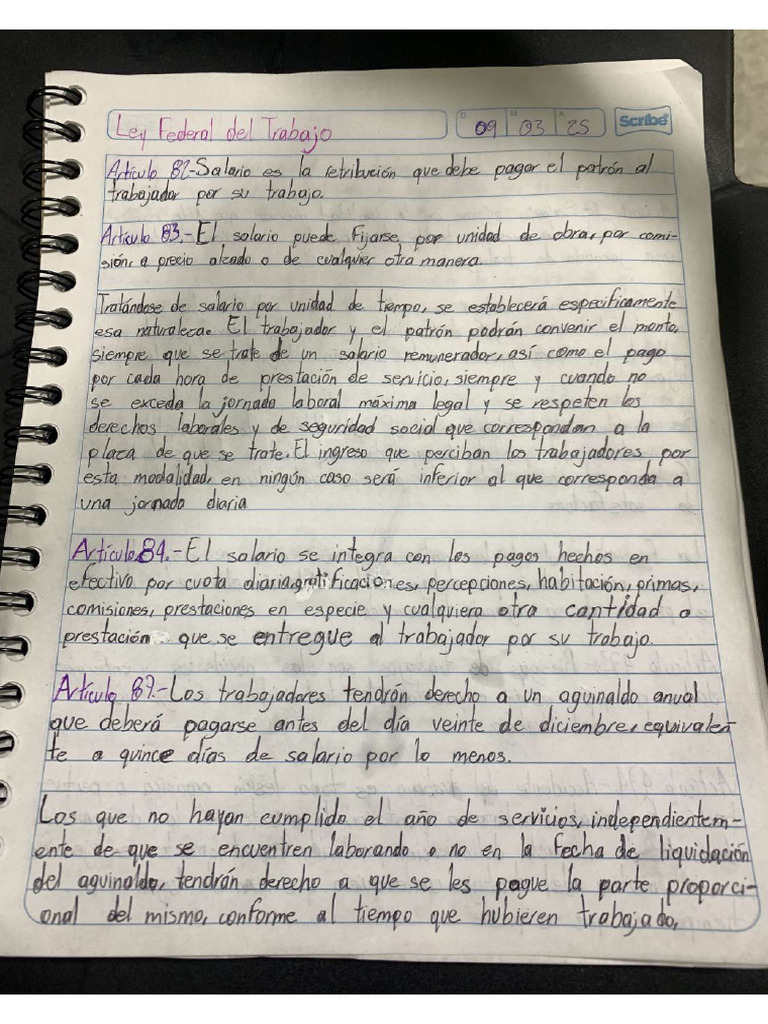 Ley Federal del Trabajo
D 09 M 03 A 25
Scribe
Artículo 82.-Salario es la retribución que debe pagar el patrón al
trabajador por su trabajo.
Artículo 83.- El salario puede fijarse por unidad de obra, por comi-
sión, a precio alzado o de cualquier otra manera.
Tratándose de salario por unidad de tiempo, se establecerá específicamente
esa naturaleza. El trabajador y el patrón podrán convenir el monto,
siempre que se trate de un salario remunerador, así como el pago
por cada hora de prestación de servicio, siempre y cuando no
se exceda la jornada laboral máxima legal y se respeten los
derechos laborales y de seguridad social que correspondan a la
plaza de que se trate. El ingreso que perciban los trabajadores por
esta modalidad, en ningún caso será inferior al que corresponda a
una jornada diaria
Artículo 84.- El salario se integra con los pagos hechos en
efectivo por cuota diaria, gratificaciones, percepciones, habitación, primas,
comisiones, prestaciones en especie y cualquiera otra cantidad o
prestación que se entregue al trabajador por su trabajo.
Artículo 87.- Los trabajadores tendrán derecho a un aguinaldo anual
que deberá pagarse antes del día veinte de diciembre, equivalen
te a quince días de salario por lo menos.
Los que no hayan cumplido el año de servicios, independientem-
ente de que se encuentren laborando o no en la fecha de liquidación
del aguinaldo, tendrán derecho a que se les pague la parte proporci-
onal del mismo, conforme al tiempo que hubieren trabajado,